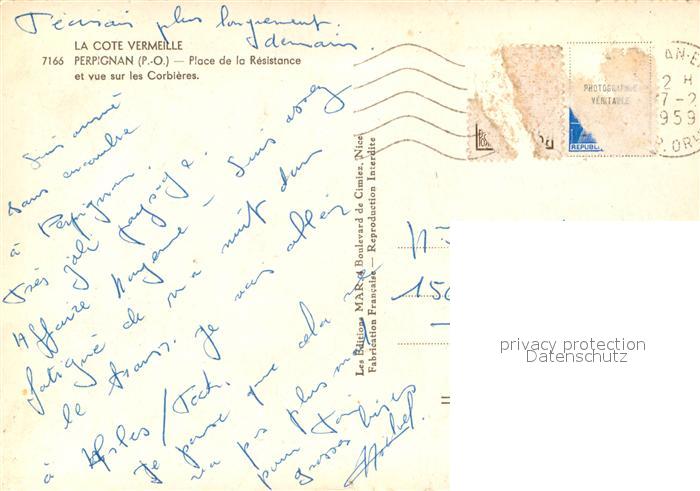 J'écrirais plus longuement
demain.
LA COTE VERMEILLE
7166 PERPIGNAN (P.-O.) — Place de la Résistance
et vue sur les Corbières.
Suis arrivé
sans encombre
à Perpignan.
Très joli paysage.
Affaire moyenne - Suis assez
fatigué de ma nuit dans
le train. Je vais aller
à
Je pense que cela ne
va pas plus mal
pour
Grosses bises
Les Editions MAR, Boulevard de Cimiez, Nice
Fabrication Française — Reproduction Interdite
PHOTOGRAPHIE
VÉRITABLE
REPUBLI
2 H
1959
P. OR
privacy protection
Datenschutz